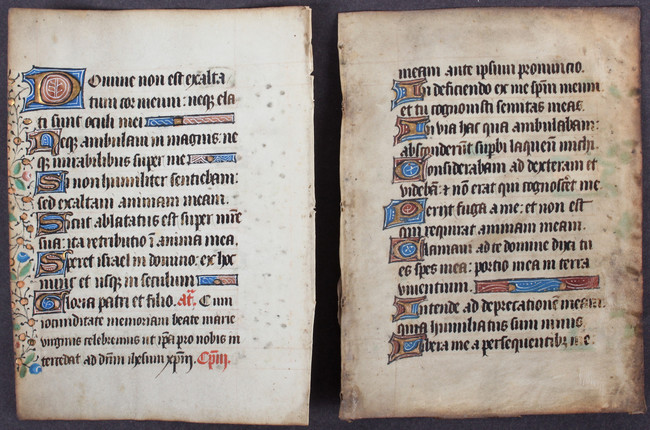 Domine non est exalta
tum cor meum: neqꝫ ela
ti sunt oculi mei
Neqꝫ ambulavi in magnis: ne
qꝫ mirabilibus super me
Si non humiliter sentiebam:
sed exaltavi animam meam.
Sicut ablatatus est super mr̄e
sua: ita retributio ī anima mea.
Speret israel in domino: ex hoc
nunc et usqꝫ in seculum
Gloria patri et filio. Cum
iocunditate memoriam beate marie
virginis celebremus ut ip̄a pro nobis in
tercedat ad dn̄m ihesum xp̄m.
meam ante ipsum pronuncio.
In deficiendo ex me sp̄m meum
et tu cognovisti semitas meas.
In via hac qua ambulabam:
absconderūt sup̄bi laqueū michi.
Considerabam ad dexteram et
videbā: ⁊ nō erat qui cognosc̄et me
Perijt fuga a me: et non est
qui requirat animam meam.
Clamavi ad te domine dixi tu
es spes mea: portio mea in terra
viventium.
Intende ad deprecationē meam:
quia humiliatus sum nimis
Libera me a persequentibꝫ me.